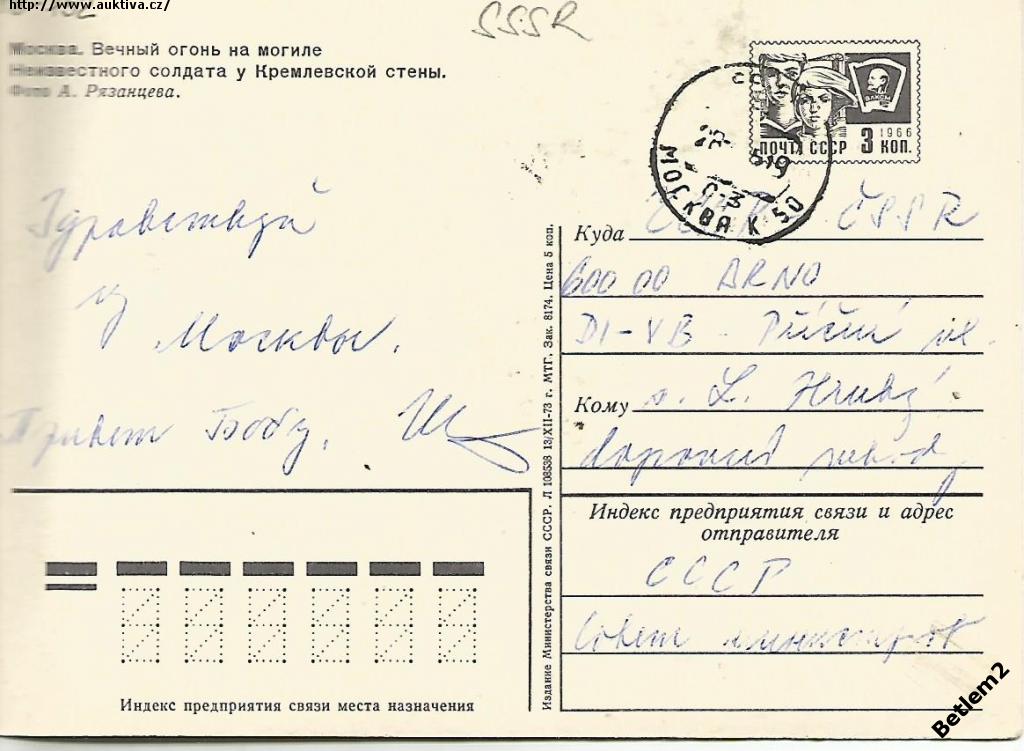 http://www.auktiva.cz/
SSSR
Москва. Вечный огонь на могиле
Неизвестного солдата у Кремлевской стены.
Фото А. Рязанцева.
ВЛКСМ
1966
ПОЧТА СССР 3 КОП.
МОСКВА К 50
Здравствуй
из
Москвы.
Привет Бобу.
Куда ČSSR
600 00 BRNO
Кому L. Hrubý
Индекс предприятия связи и адрес
отправителя
СССР
Совет министров
Издание Министерства связи СССР. Л 108538 13/XII-73 г. МТГ. Зак. 8174. Цена 5 коп.
Индекс предприятия связи места назначения
Betlem2